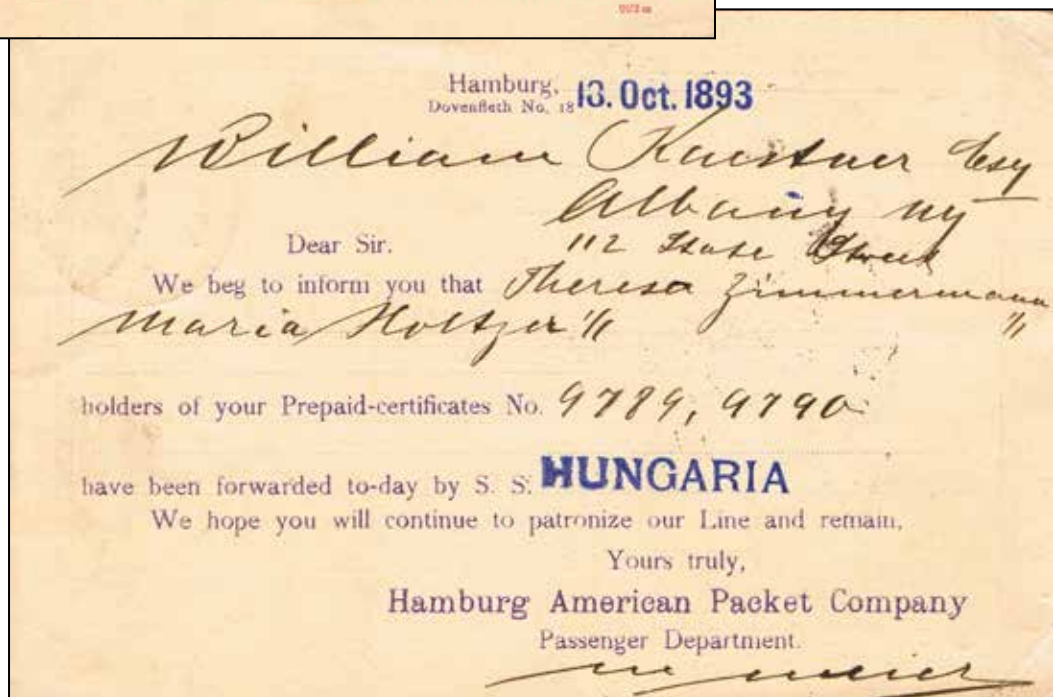 Hamburg,
Dovenfleth No. 18 13. Oct. 1893
William Kaestner Esq
Albany NY
112 State Street
Dear Sir.
We beg to inform you that Theresa Zimmermann 1/1
Maria Holtzer 1/1
holders of your Prepaid-certificates No. 9789, 9790
have been forwarded to-day by S. S. HUNGARIA
We hope you will continue to patronize our Line and remain,
Yours truly,
Hamburg American Packet Company
Passenger Department.